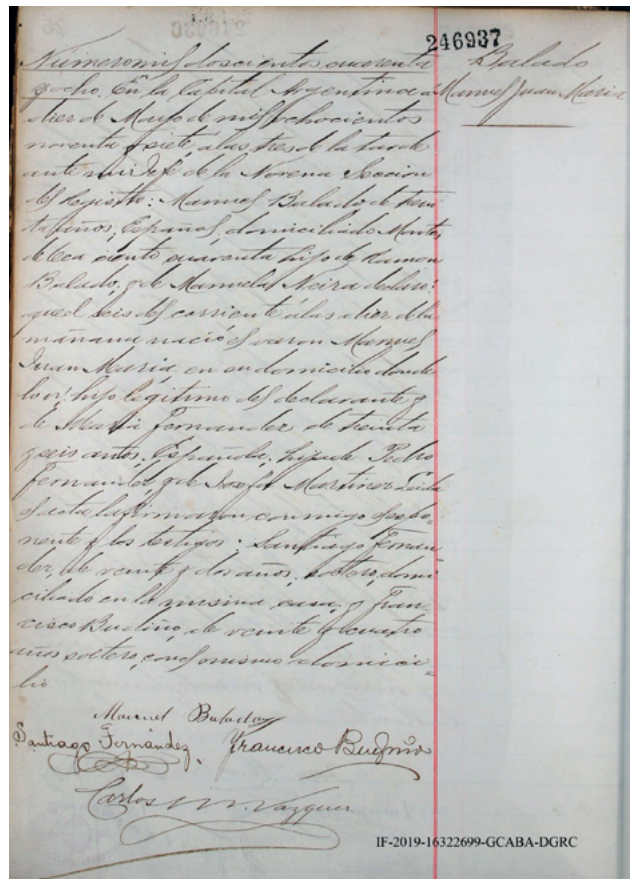 246937
Balado
Manuel Juan Maria
Numero mil doscientos cuarenta
y ocho. En la Capital Argentina a
diez de Mayo de mil ochocientos
noventa y siete, a las tres de la tarde
ante mi Jefe de la Novena Seccion
del Registro: Manuel Balado de trein
ta años, Español, domiciliado Montes
deoca ciento cuarenta hijo de Ramon
Balado, y de Manuela Neira declaró:
que el seis del corriente a las diez de la
mañana nació el varon Manuel
Juan María, en su domicilio donde
lo vi: hijo legitimo del declarante y
de María Fernandez de treinta
y seis años, Española, hija de Pedro
Fernandez, y de Josefa Martinez Leida
el acta la firmaron conmigo el expo-
nente y los testigos: Santiago Fernan
dez, de veinte y dos años, soltero, domi
ciliado en la misma casa, y Fran-
cisco Budiño, de veinte y cuatro
años soltero, con el mismo domici-
lio
Manuel Balado
Santiago Fernández. Francisco Budiño
Carlos M. Vazquez
IF-2019-16322699-GCABA-DGRC